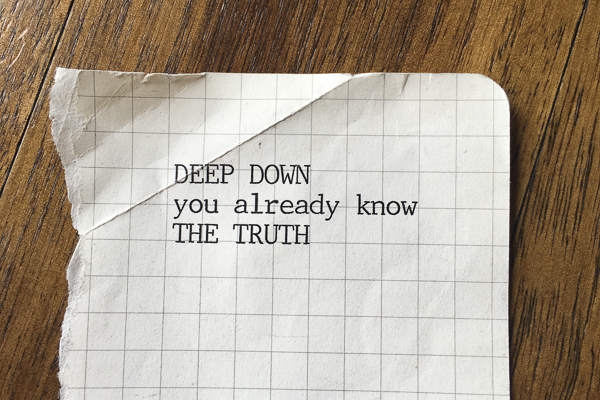 DEEP DOWN
you already know
THE TRUTH